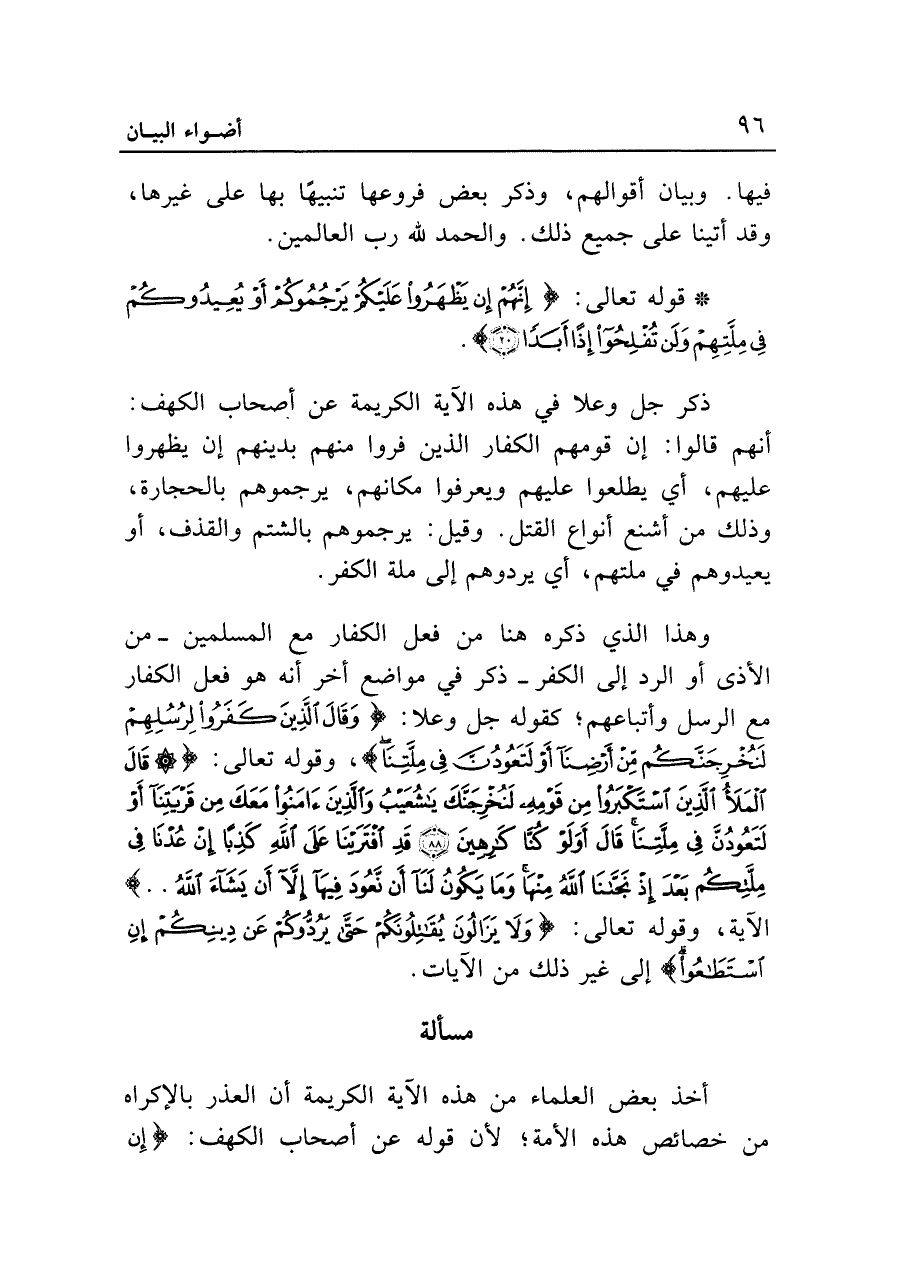 ٩٦ أضـواء البيـان
فيها. وبيان أقوالهم، وذكر بعض فروعها تنبيهًا بها على غيرها،
وقد أتينا على جميع ذلك. والحمد لله رب العالمين.
* قوله تعالى: ﴿ إِنَّهُمْ إِن يَظْهَرُوا۟ عَلَيْكُمْ يَرْجُمُوكُمْ أَوْ يُعِيدُوكُمْ
فِى مِلَّتِهِمْ وَلَن تُفْلِحُوٓا۟ إِذًا أَبَدًا ٢٠﴾.
ذكر جل وعلا في هذه الآية الكريمة عن أصحاب الكهف:
أنهم قالوا: إن قومهم الكفار الذين فروا منهم بدينهم إن يظهروا
عليهم، أي يطلعوا عليهم ويعرفوا مكانهم، يرجموهم بالحجارة،
وذلك من أشنع أنواع القتل. وقيل: يرجموهم بالشتم والقذف، أو
يعيدوهم في ملتهم، أي يردوهم إلى ملة الكفر.
وهذا الذي ذكره هنا من فعل الكفار مع المسلمين ـ من
الأذى أو الرد إلى الكفر ـ ذكر في مواضع أخر أنه هو فعل الكفار
مع الرسل وأتباعهم؛ كقوله جل وعلا: ﴿ وَقَالَ ٱلَّذِينَ كَفَرُوا۟ لِرُسُلِهِمْ
لَنُخْرِجَنَّكُم مِّنْ أَرْضِنَآ أَوْ لَتَعُودُنَّ فِى مِلَّتِنَا ۖ﴾، وقوله تعالى: ﴿ ۞ قَالَ
ٱلْمَلَأُ ٱلَّذِينَ ٱسْتَكْبَرُوا۟ مِن قَوْمِهِۦ لَنُخْرِجَنَّكَ يَـٰشُعَيْبُ وَٱلَّذِينَ ءَامَنُوا۟ مَعَكَ مِن قَرْيَتِنَآ أَوْ
لَتَعُودُنَّ فِى مِلَّتِنَا ۚ قَالَ أَوَلَوْ كُنَّا كَـٰرِهِينَ ٨٨ قَدِ ٱفْتَرَيْنَا عَلَى ٱللَّهِ كَذِبًا إِنْ عُدْنَا فِى
مِلَّتِكُم بَعْدَ إِذْ نَجَّىٰنَا ٱللَّهُ مِنْهَا ۚ وَمَا يَكُونُ لَنَآ أَن نَّعُودَ فِيهَآ إِلَّآ أَن يَشَآءَ ٱللَّهُ . . ﴾
الآية، وقوله تعالى: ﴿ وَلَا يَزَالُونَ يُقَـٰتِلُونَكُمْ حَتَّىٰ يَرُدُّوكُمْ عَن دِينِكُمْ إِنِ
ٱسْتَطَـٰعُوا۟ ۚ﴾ إلى غير ذلك من الآيات.
مسألة
أخذ بعض العلماء من هذه الآية الكريمة أن العذر بالإكراه
من خصائص هذه الأمة؛ لأن قوله عن أصحاب الكهف: ﴿ إِن